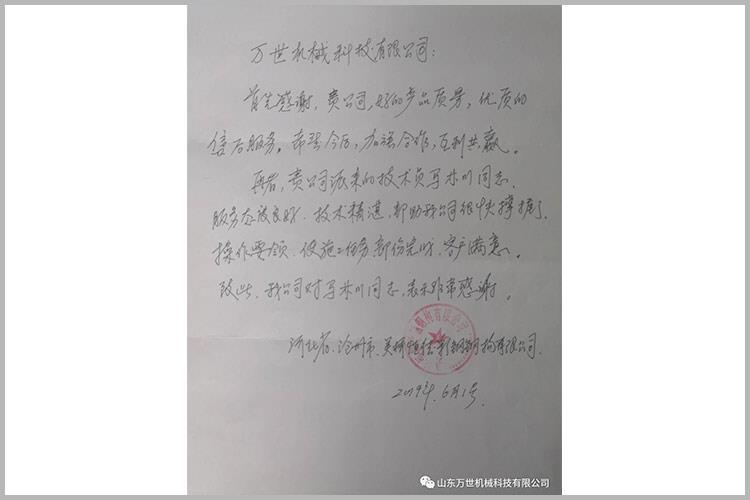 万世机械科技有限公司:
首先感谢,贵公司,好的产品质量,优质的
售后服务。希望今后,加强合作,互利共赢。
再者,贵公司派来的技术员马林川同志,
服务态度良好,技术精湛,帮助我公司很快掌握了
操作要领,使施工任务新伤完成,客户满意。
致此,我公司对马林川同志,表示非常感谢。
河北省,沧州市,钢构有限公司
2019年6月1号
山东万世机械科技有限公司